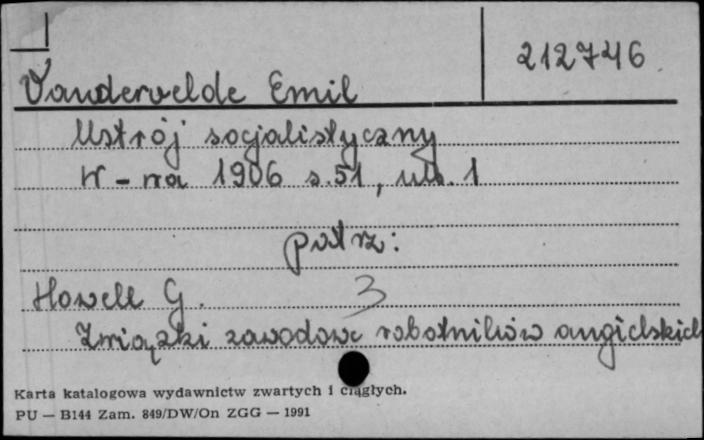 212746
Vandervelde Emil
Ustrój socjalistyczny
W-wa 1906 s.51, nlb. 1
patrz:
Howell G. 3
Związki zawodowe robotników angielskich
Karta katalogowa wydawnictw zwartych i ciągłych.
PU — B144 Zam. 849/DW/On ZGG — 1991